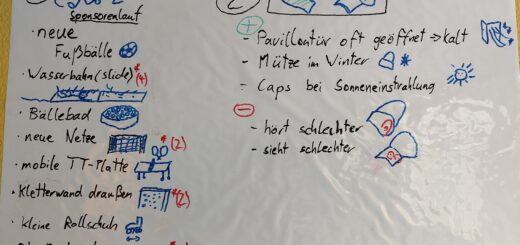 Sponsorenlauf
· neue
Fußbälle
· Wasserbahn (slide) *(4)
· Bällebad
· neue Netze *(2)
· mobile TT-Platte
· Kletterwand draußen *(2)
· kleine Rollschuh
+
- Pavillontür oft geöffnet ⇒ kalt
- Mütze im Winter
- Caps bei Sonneneinstrahlung
-
- hört schlechter
- sieht schlechter